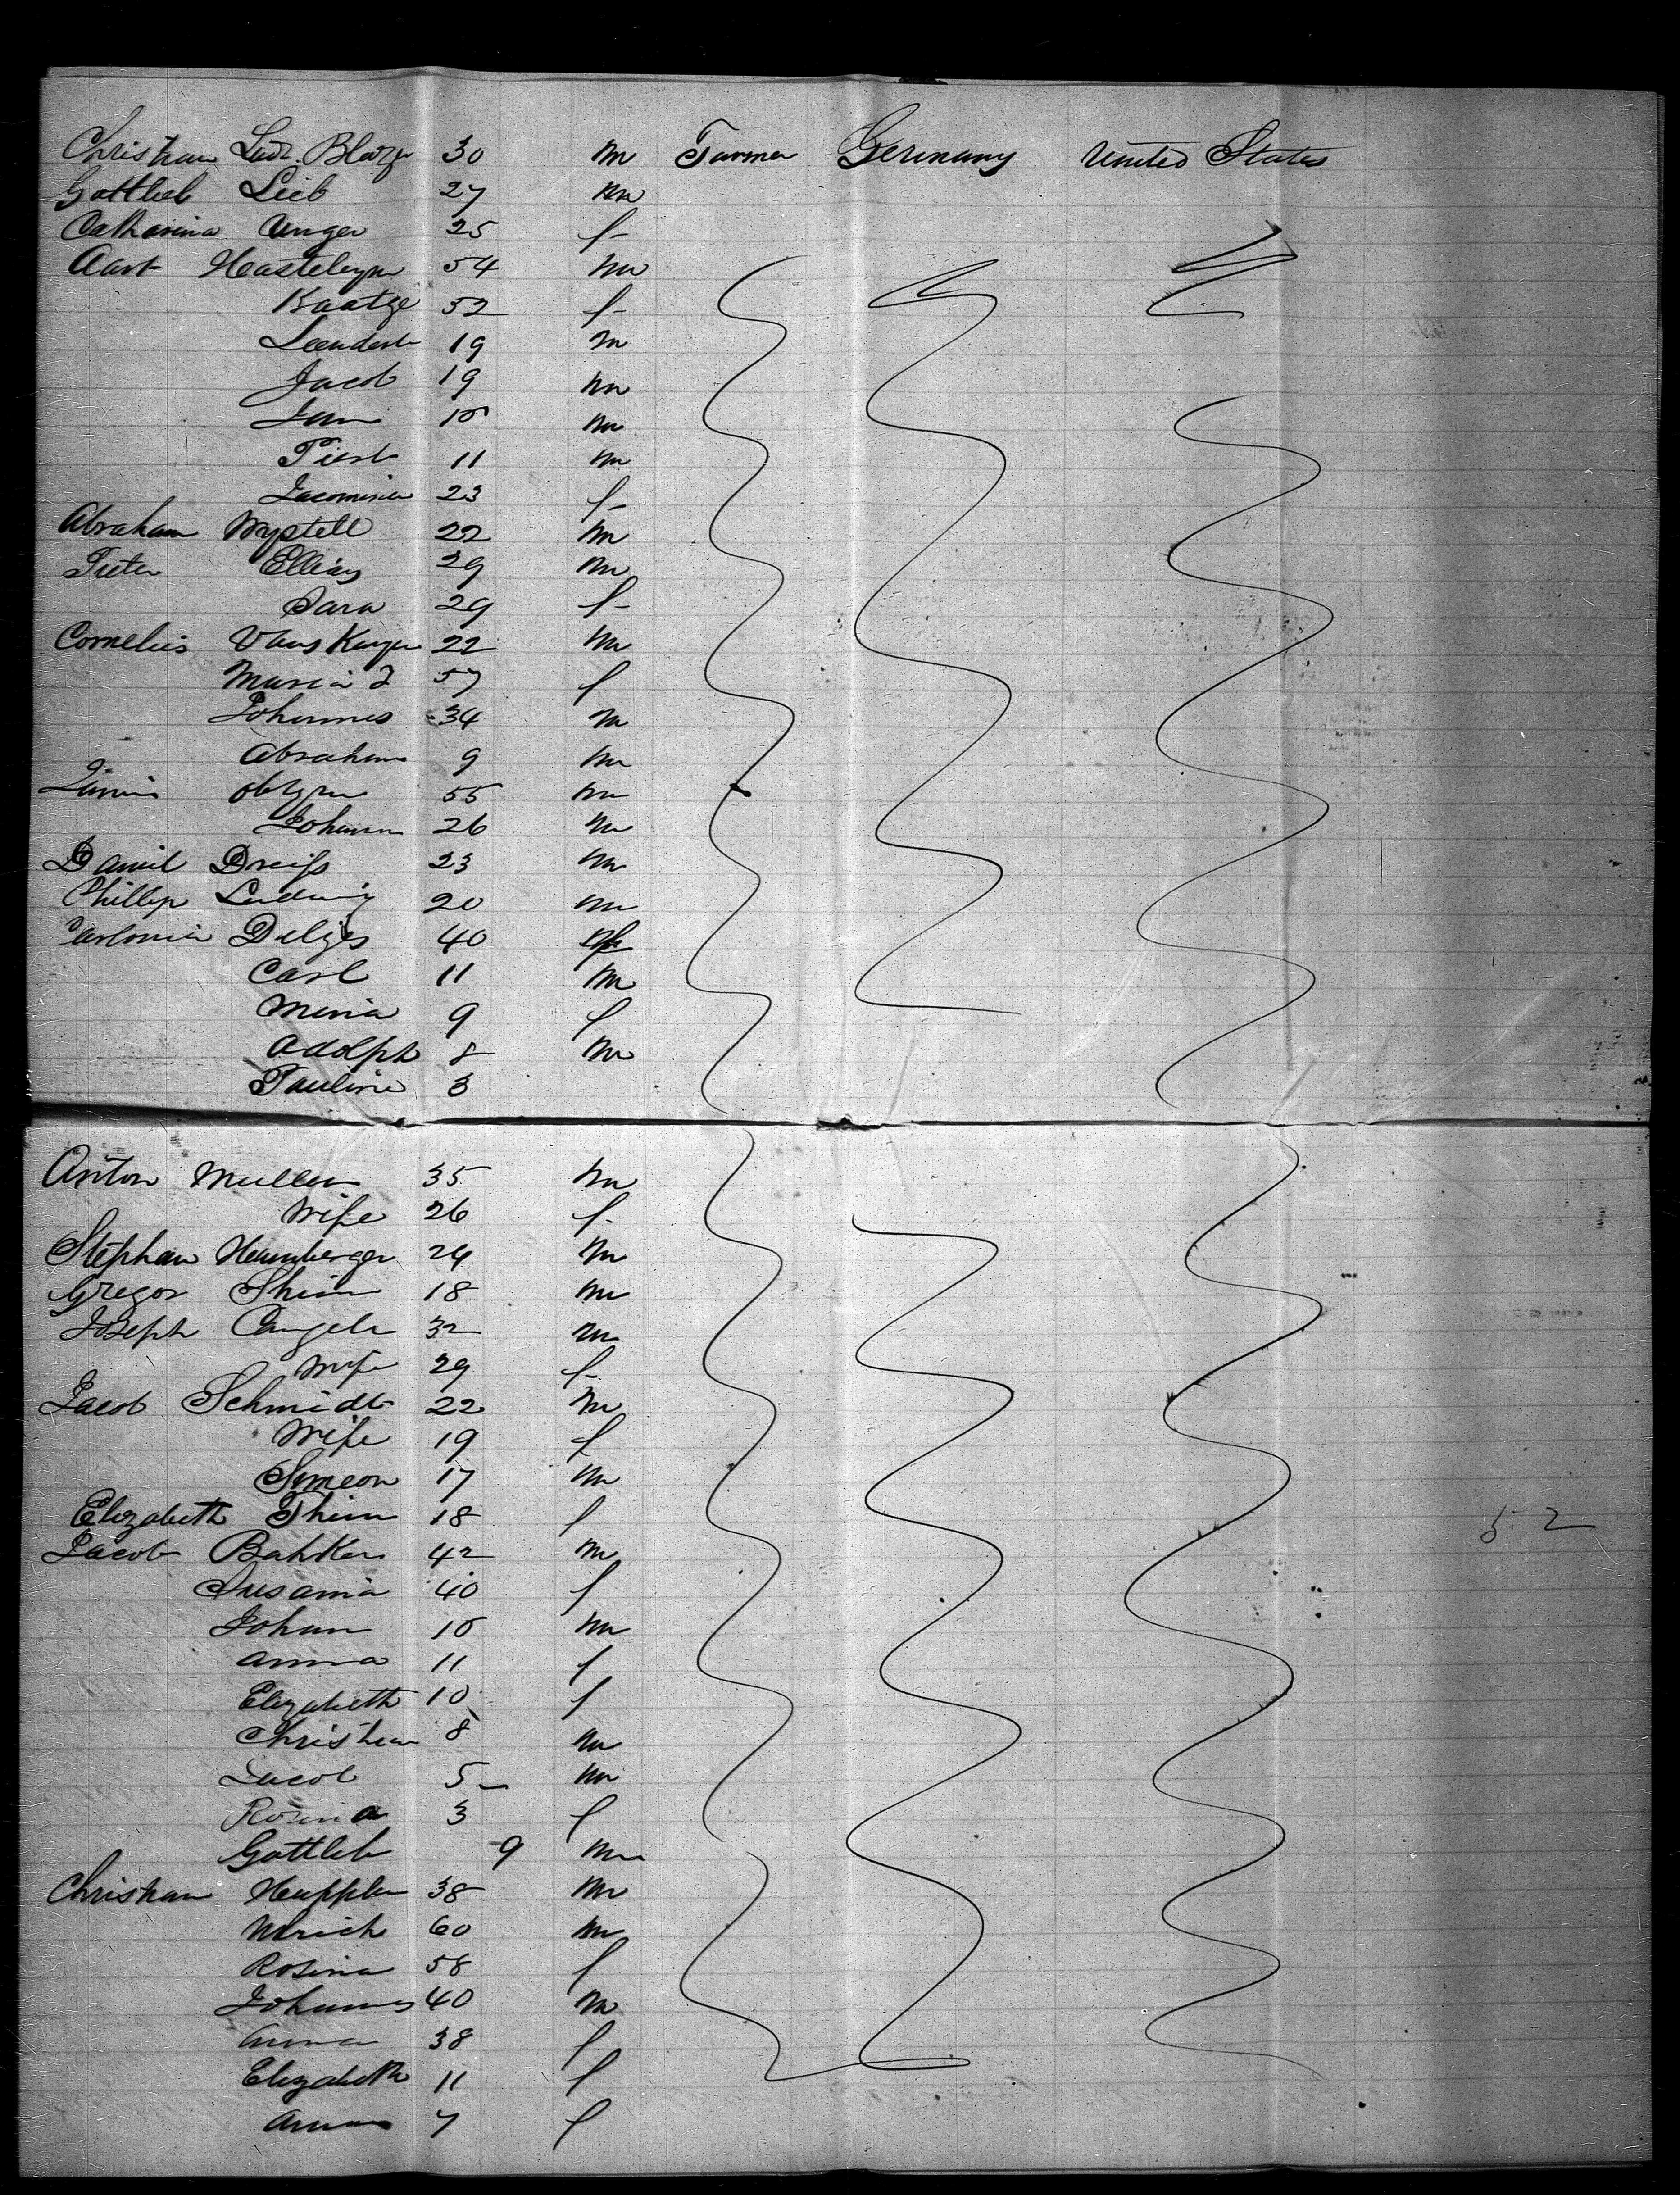 Christian Ludr. 30 m Farmer Germany United States
Gottlieb Lieb 27 m
Catharina Unger 25 f
Aart Hasteleyn 54 m
Kaatge 52 f
Leendert 19 m
Jacob 19 m
Jan m
Piert 11 m
Jacomina 23 f
Abraham 22 m
Pieter Ellias 29 m
Sara 29 f
Cornelius 22 m
Maria J 57 f
Johannes 34 m
Abraham 9 m
55 m
Johann 26 m
Daniel Dreiss 23 m
Phillip Ludwig 20 m
40 f
Carl 11 m
Maria 9 f
Adolph 8 m
Pauline 3
Anton Muller 35 m
Wife 26 f
Stephan 24 m
Gregor 18 m
Joseph 32 m
Wife 29 f
Jacob Schmidt 22 m
Wife 19 f
Simeon 17 m
Elizabeth Thim 18 f 52
Jacob 42 m
Susania 40 f
Johan m
Anna 11 f
Elizabeth 10 f
Christian 8 m
Jacob 5 m
Rosina 3 f
Gottlieb 9 m
Christian Heuppler 38 m
Ulrich 60 m
Rosina 58 f
Johannes 40 m
Anna 38 f
Elizabeth 11 f
Anna 7 f